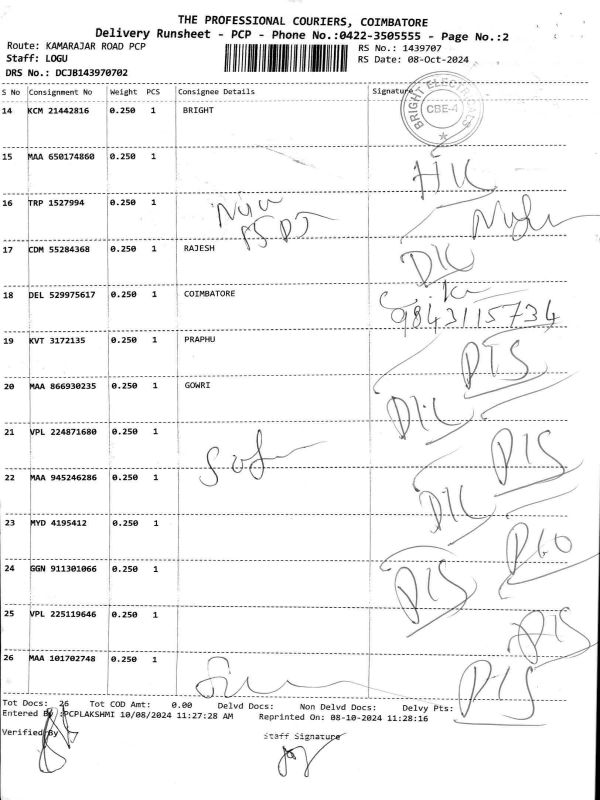 THE PROFESSIONAL COURIERS, COIMBATORE
Delivery Runsheet - PCP - Phone No.:0422-3505555 - Page No.:2
Route: KAMARAJAR ROAD PCP RS No.: 1439707
Staff: LOGU RS Date: 08-Oct-2024
DRS No.: DCJB143970702
S No Consignment No Weight PCS Consignee Details Signature
14 KCM 21442816 0.250 1 BRIGHT
BRIGHT ELECTRICALS CBE-4
15 MAA 650174860 0.250 1
16 TRP 1527994 0.250 1
17 CDM 55284368 0.250 1 RAJESH
18 DEL 529975617 0.250 1 COIMBATORE
9843115734
19 KVT 3172135 0.250 1 PRAPHU
20 MAA 866930235 0.250 1 GOWRI
21 VPL 224871680 0.250 1
22 MAA 945246286 0.250 1
23 MYD 4195412 0.250 1
24 GGN 911301066 0.250 1
25 VPL 225119646 0.250 1
26 MAA 101702748 0.250 1
Tot Docs: 26 Tot COD Amt: 0.00 Delvd Docs: Non Delvd Docs: Delvy Pts:
Entered By :PCPLAKSHMI 10/08/2024 11:27:28 AM Reprinted On: 08-10-2024 11:28:16
Verified By Staff Signature